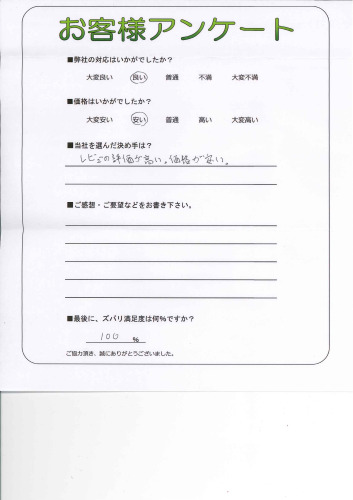 お客様アンケート
■弊社の対応はいかがでしたか?
大変良い 良い 普通 不満 大変不満
■価格はいかがでしたか?
大変安い 安い 普通 高い 大変高い
■当社を選んだ決め手は?
レビューの評価が高い。価格が安い。
■ご感想・ご要望などをお書き下さい。
■最後に、ズバリ満足度は何%ですか?
100 %
ご協力頂き、誠にありがとうございました。